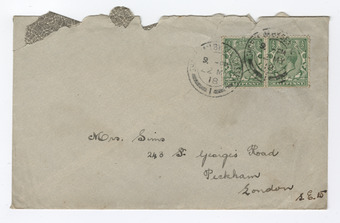 Mrs. Sims
243 St. George's Road
Peckham
London
S.E.15